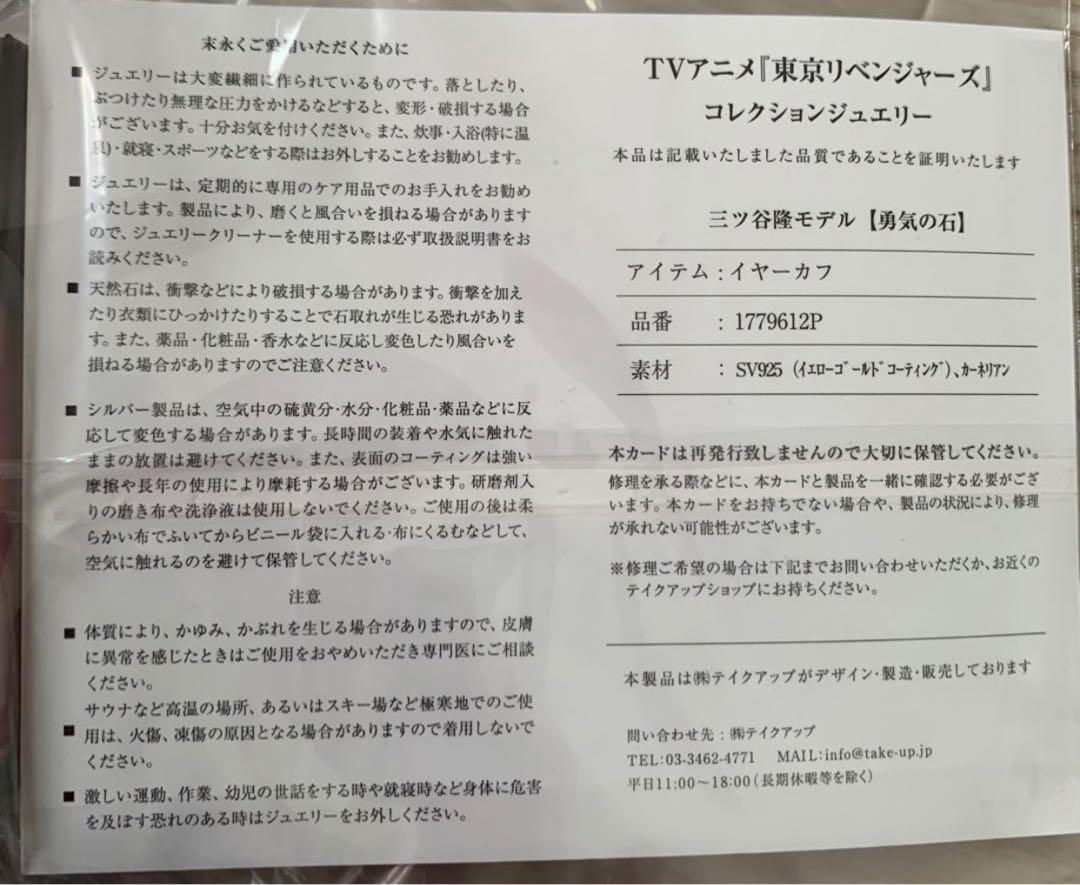 末永くご愛用いただくために
■ ジュエリーは大変繊細に作られているものです。落としたり、
ぶつけたり無理な圧力をかけるなどすると、変形・破損する場合
がございます。十分お気を付けください。また、炊事・入浴(特に温
泉)・就寝・スポーツなどをする際はお外しすることをお勧めします。
■ ジュエリーは、定期的に専用のケア用品でのお手入れをお勧め
いたします。製品により、磨くと風合いを損ねる場合があります
ので、ジュエリークリーナーを使用する際は必ず取扱説明書をお
読みください。
■ 天然石は、衝撃などにより破損する場合があります。衝撃を加え
たり衣類にひっかけたりすることで石取れが生じる恐れがありま
す。また、薬品・化粧品・香水などに反応し変色したり風合いを
損ねる場合がありますのでご注意ください。
■ シルバー製品は、空気中の硫黄分・水分・化粧品・薬品などに反
応して変色する場合があります。長時間の装着や水気に触れた
ままの放置は避けてください。また、表面のコーティングは強い
摩擦や長年の使用により摩耗する場合がございます。研磨剤入
りの磨き布や洗浄液は使用しないでください。ご使用の後は柔
らかい布でふいてからビニール袋に入れる・布にくるむなどして、
空気に触れるのを避けて保管してください。
注意
■ 体質により、かゆみ、かぶれを生じる場合がありますので、皮膚
に異常を感じたときはご使用をおやめいただき専門医にご相談
ください。
サウナなど高温の場所、あるいはスキー場など極寒地でのご使
■ 用は、火傷、凍傷の原因となる場合がありますので着用しないで
ください。
■ 激しい運動、作業、幼児の世話をする時や就寝時など身体に危害
を及ぼす恐れのある時はジュエリーをお外しください。
TVアニメ『東京リベンジャーズ』
コレクションジュエリー
本品は記載いたしました品質であることを証明いたします
三ツ谷隆モデル【勇気の石】
アイテム：イヤーカフ
品番 ：1779612P
素材 ：SV925（ｲｴﾛｰｺﾞｰﾙﾄﾞｺｰﾃｨﾝｸﾞ）、ｶｰﾈﾘｱﾝ
本カードは再発行致しませんので大切に保管してください。
修理を承る際などに、本カードと製品を一緒に確認する必要がござ
います。本カードをお持ちでない場合や、製品の状況により、修理
が承れない可能性がございます。
※修理ご希望の場合は下記までお問い合わせいただくか、お近くの
テイクアップショップにお持ちください。
本製品は㈱テイクアップがデザイン・製造・販売しております
問い合わせ先：㈱テイクアップ
TEL：03-3462-4771 MAIL：info@take-up.jp
平日11:00～18:00（長期休暇等を除く）